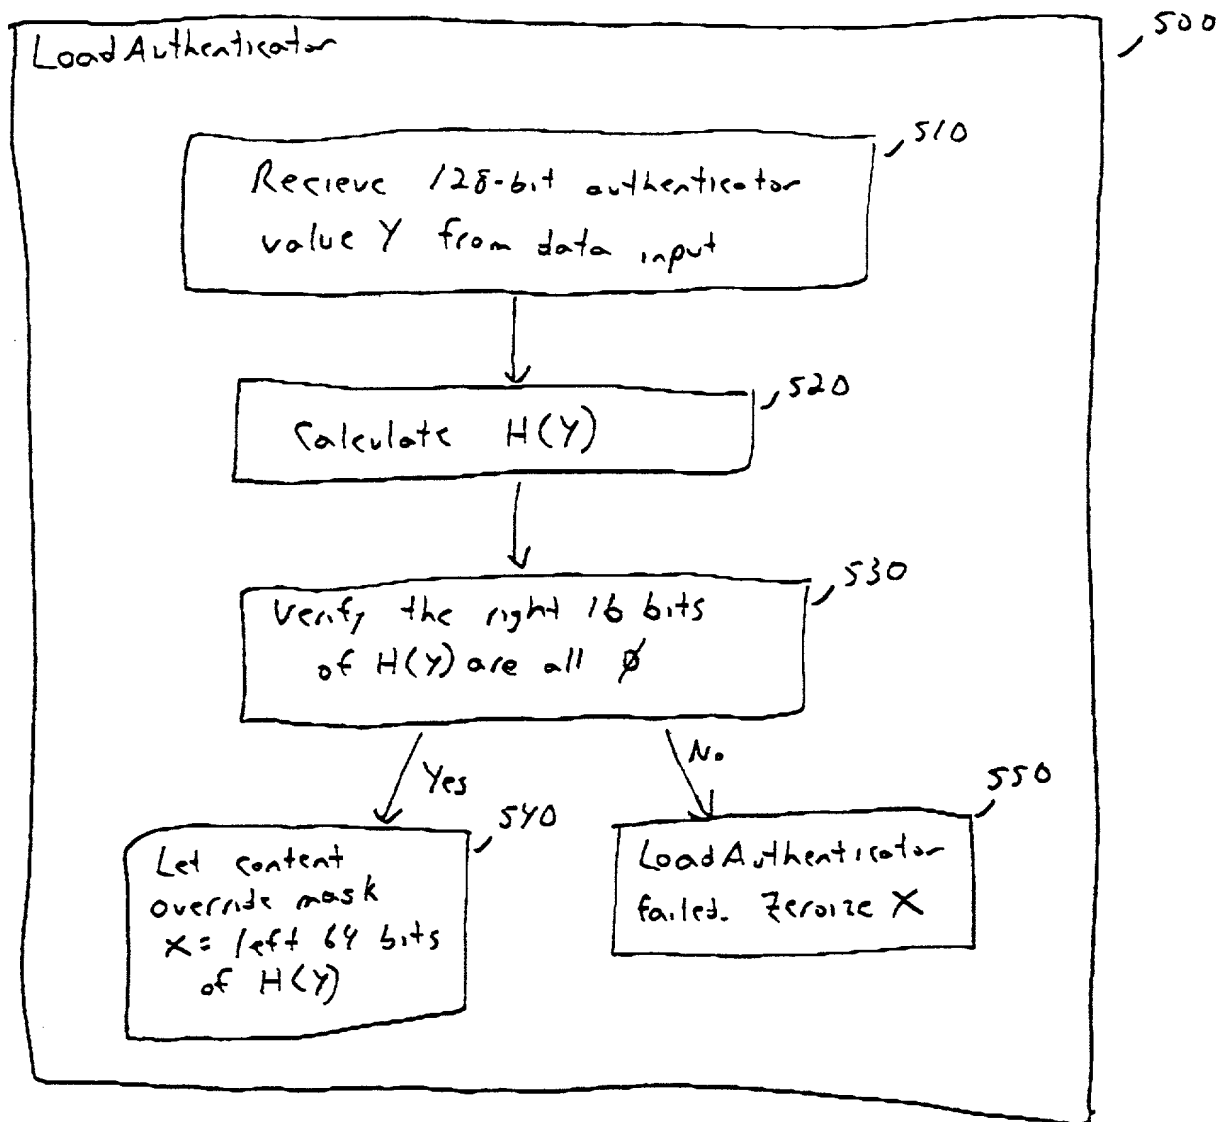 500
LoadAuthenticator
510
Recieve 128-bit authenticator
value Y from data input
520
Calculate H(Y)
530
Verify the right 16 bits
of H(Y) are all Ø
Yes
No
540
550
Let content
override mask
X = left 64 bits
of H(Y)
LoadAuthenticator
failed. Zeroize X